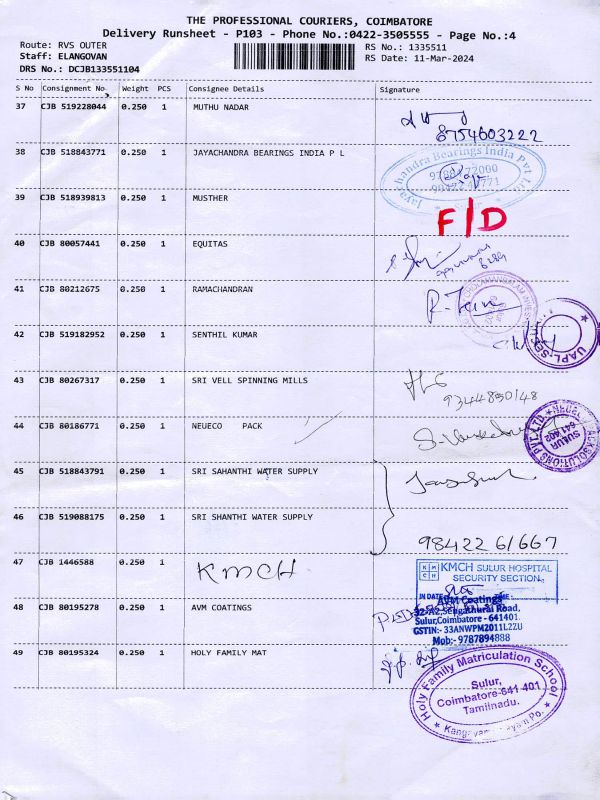 THE PROFESSIONAL COURIERS, COIMBATORE
Delivery Runsheet - P103 - Phone No.:0422-3505555 - Page No.:4
Route: RVS OUTER
RS No.: 1335511
Staff: ELANGOVAN
RS Date: 11-Mar-2024
DRS No.: DCJB133551104
S No Consignment No. Weight PCS Consignee Details Signature
37 CJB 519228044 0.250 1 MUTHU NADAR
8754603222
38 CJB 518843771 0.250 1 JAYACHANDRA BEARINGS INDIA P L
39 CJB 518939813 0.250 1 MUSTHER
F/D
40 CJB 80057441 0.250 1 EQUITAS
41 CJB 80212675 0.250 1 RAMACHANDRAN
42 CJB 519182952 0.250 1 SENTHIL KUMAR
43 CJB 80267317 0.250 1 SRI VELL SPINNING MILLS
44 CJB 80186771 0.250 1 NEUECO PACK
SULUR
641 402
45 CJB 518843791 0.250 1 SRI SAHANTHI WATER SUPPLY
46 CJB 519088175 0.250 1 SRI SHANTHI WATER SUPPLY
98422 61667
47 CJB 1446588 0.250 1 KMCH
KMCH SULUR HOSPITAL
SECURITY SECTION
IN DATE
48 CJB 80195278 0.250 1 AVM COATINGS
AVM Coatings
Sulur,Coimbatore - 641401.
GSTIN:- 33ANWPM2011L2ZU
Mob:- 9787894888
49 CJB 80195324 0.250 1 HOLY FAMILY MAT
Holy Family Matriculation School
Sulur,
Coimbatore-641 401
Tamilnadu.